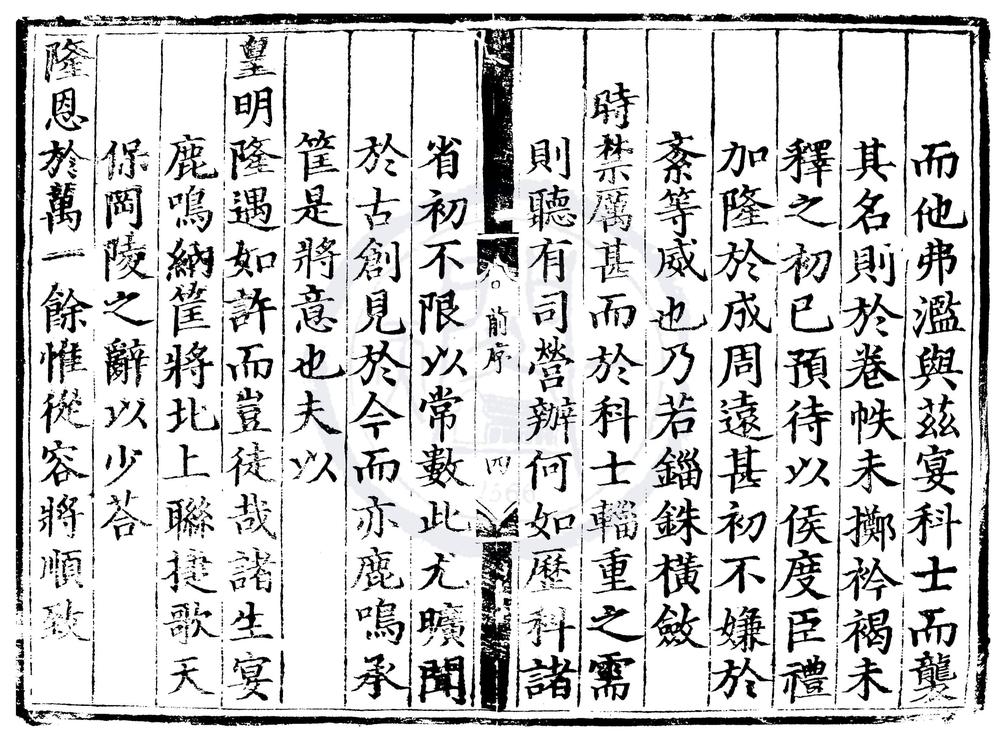 而他弗濫與茲宴科士而襲
其名則於卷帙未擲衿褐未
釋之初已預待以侯度臣禮
加隆於成周遠甚初不嫌於
紊等威也乃若錙銖橫斂
時禁厲甚而於科士輜重之需
則聽有司營辦何如歷科諸
前序
四
省初不限以常數此尤曠聞
於古創見於今而亦鹿鳴承
筐是將意也夫以
皇明隆遇如許而豈徒哉諸生宴
鹿鳴納筐將北上聯捷歌天
保岡陵之辭以少荅
隆恩於萬一餘惟從容將順致